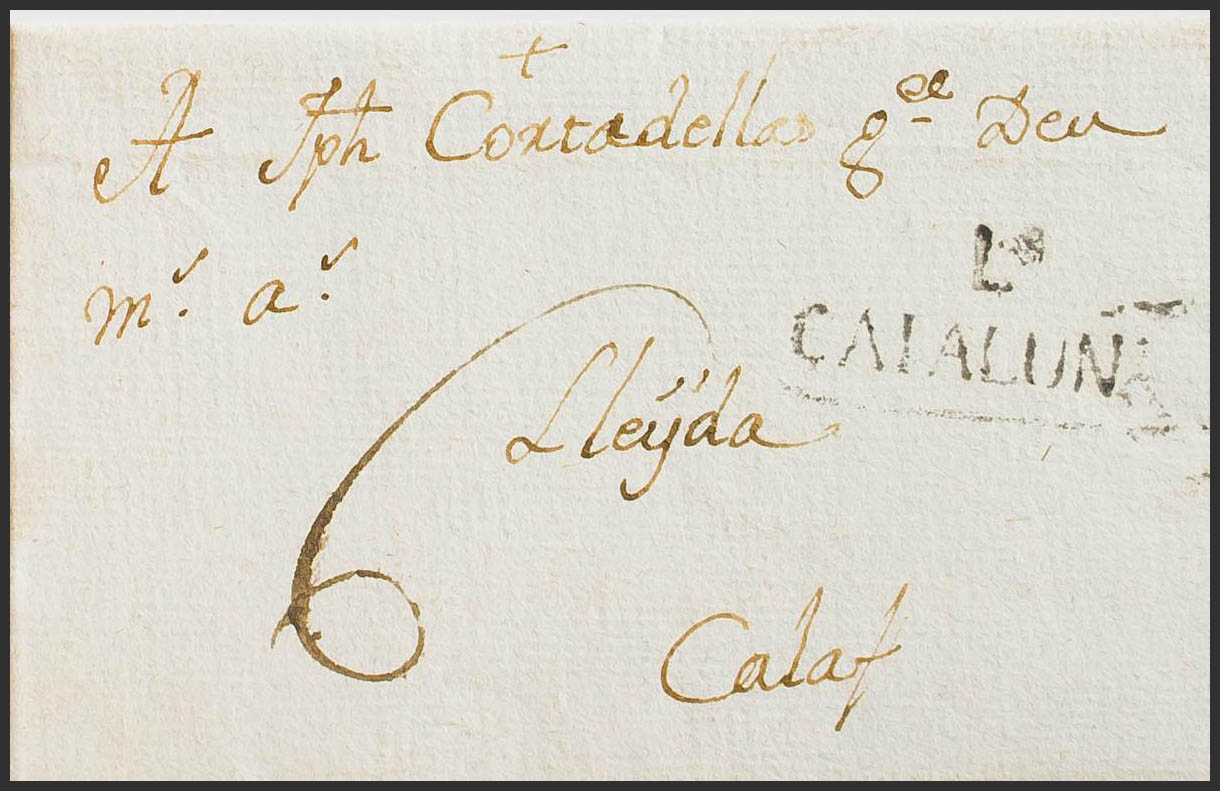 +
A Jph Cortadellas g.ee Deu
m.s a.s
L.a
CATALUÑA
Lleÿda
6
Calaf